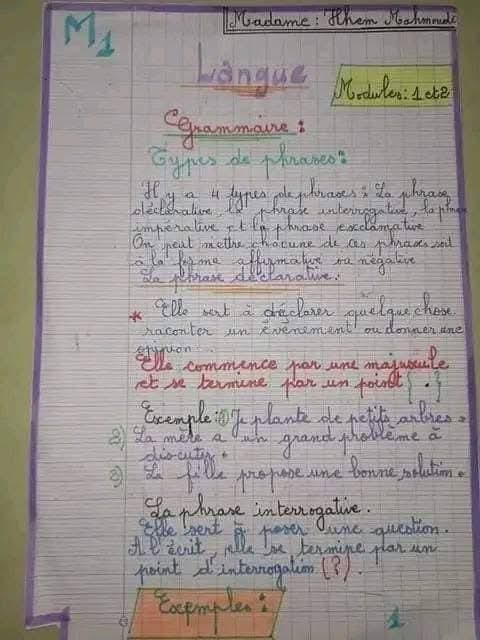 Madame : Hhem Mahmoudi
M1
Langue
Modules : 1 et 2
Grammaire :
Types de phrases :
Il y a 4 types de phrases : La phrase
déclarative, la phrase interrogative, la phrase
impérative et la phrase exclamative
On peut mettre chacune de ces phrases soit
à la forme affirmative ou négative
La phrase déclarative :
* Elle sert à déclarer quelque chose
raconter un événement ou donner une
opinion
Elle commence par une majuscule
et se termine par un point { . }
Exemple : 1 Je plante de petits arbres.
2) La mère a un grand problème à
discuter.
3) La fille propose une bonne solution.
La phrase interrogative.
Elle sert à poser une question.
A l'écrit, elle se termine par un
point d'interrogation (?).
Exemples :
1